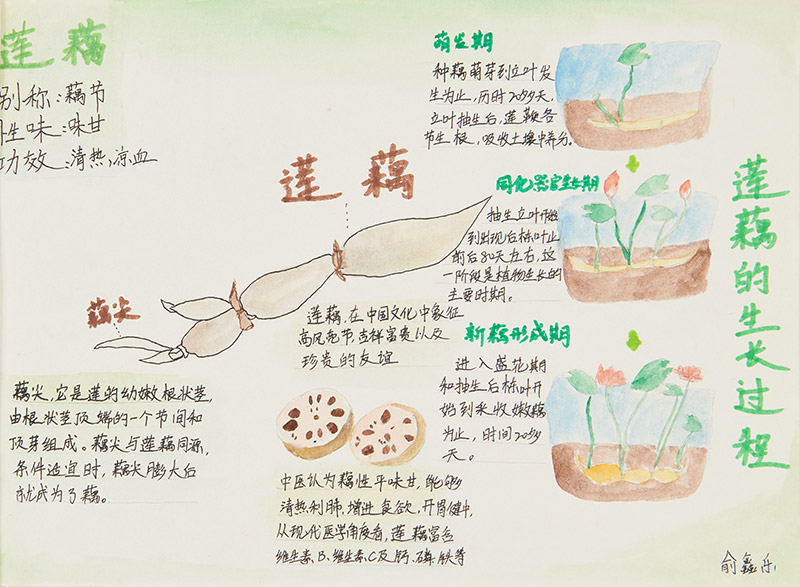 莲藕
别称:藕节
性味:味甘
功效:清热,凉血
莲藕
藕尖
藕尖,它是莲的幼嫩根状茎,
由根状茎顶端的一个节间和
顶芽组成。藕尖与莲藕同源,
条件适宜时,藕尖膨大后
就成为了藕。
莲藕,在中国文化中象征
高风亮节,吉祥富贵以及
珍贵的友谊
中医认为藕性平味甘,能够
清热利肺,增进食欲,开胃健中,
从现代医学角度看,莲藕富含
维生素B、维生素C及钙、磷、铁等
萌发期
种藕萌芽到立叶发
生为止,历时20多天,
立叶抽生后,莲鞭各
节生根,吸收土壤中养分。
同化器官生长期
抽生立叶开始
到出现后栋叶止
前后80天左右,这
一阶段是植物生长的
主要时期。
新藕形成期
进入盛花期
和抽生后栋叶开
始到采收嫩藕
为止,时间20多
天。
莲藕的生长过程
俞鑫乐